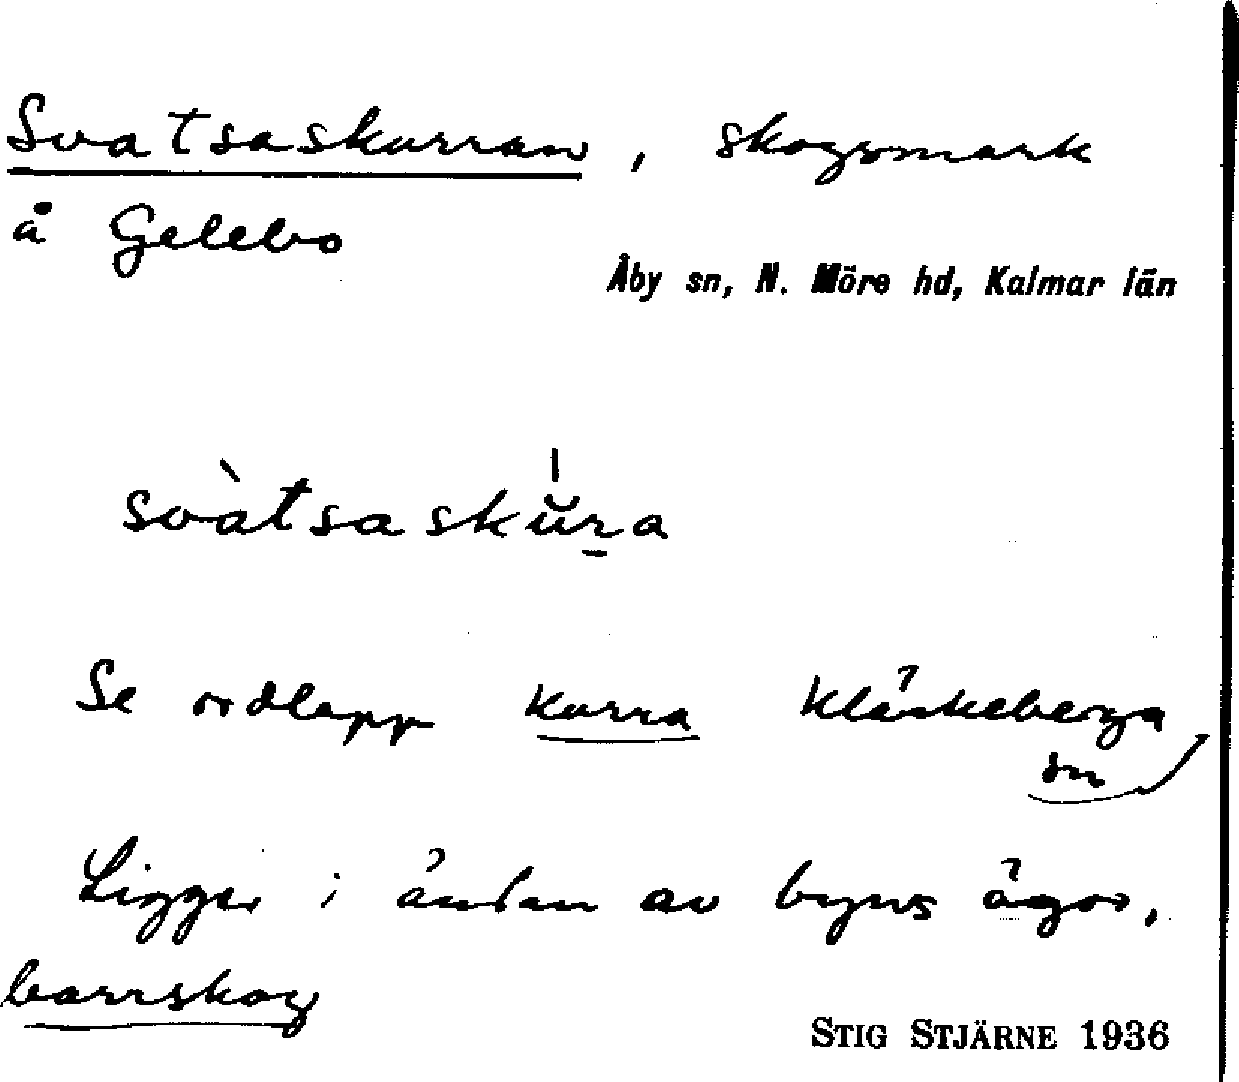 Svatsaskurran, skogsmark
å Gelebo
Åby sn, N. Möre hd, Kalmar län
svàtsaskŭra
Se ordlapp kurra Kläckeberga
sn
Ligger i ändan av byns ägor,
barrskog
STIG STJÄRNE 1936